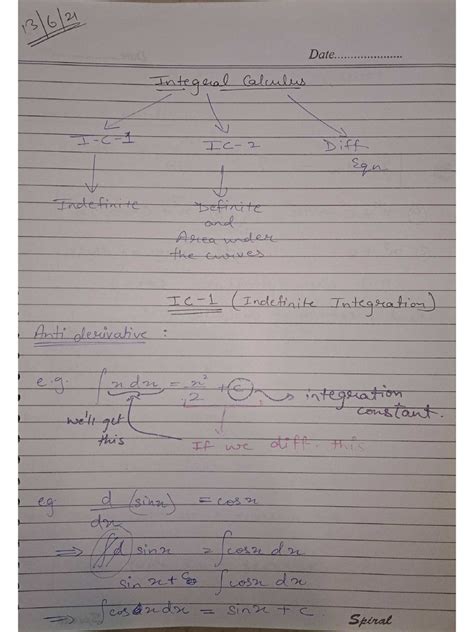 13/6/21
Date.....................
Integral Calculus
I-C-1 IC-2 Diff
Eqn.
Indefinite Definite
and
Area under
the curves
IC-1 (Indefinite Integration)
Anti derivative :
e.g. ∫x dx = x²/2 + C → integration
constant.
we'll get
this
If we diff. this
eg d/dx (sinx) = cosx
⇒ ∫d sinx = ∫cosx dx
sinx + C = ∫cosx dx
⇒ ∫cosx dx = sinx + c.
Spiral